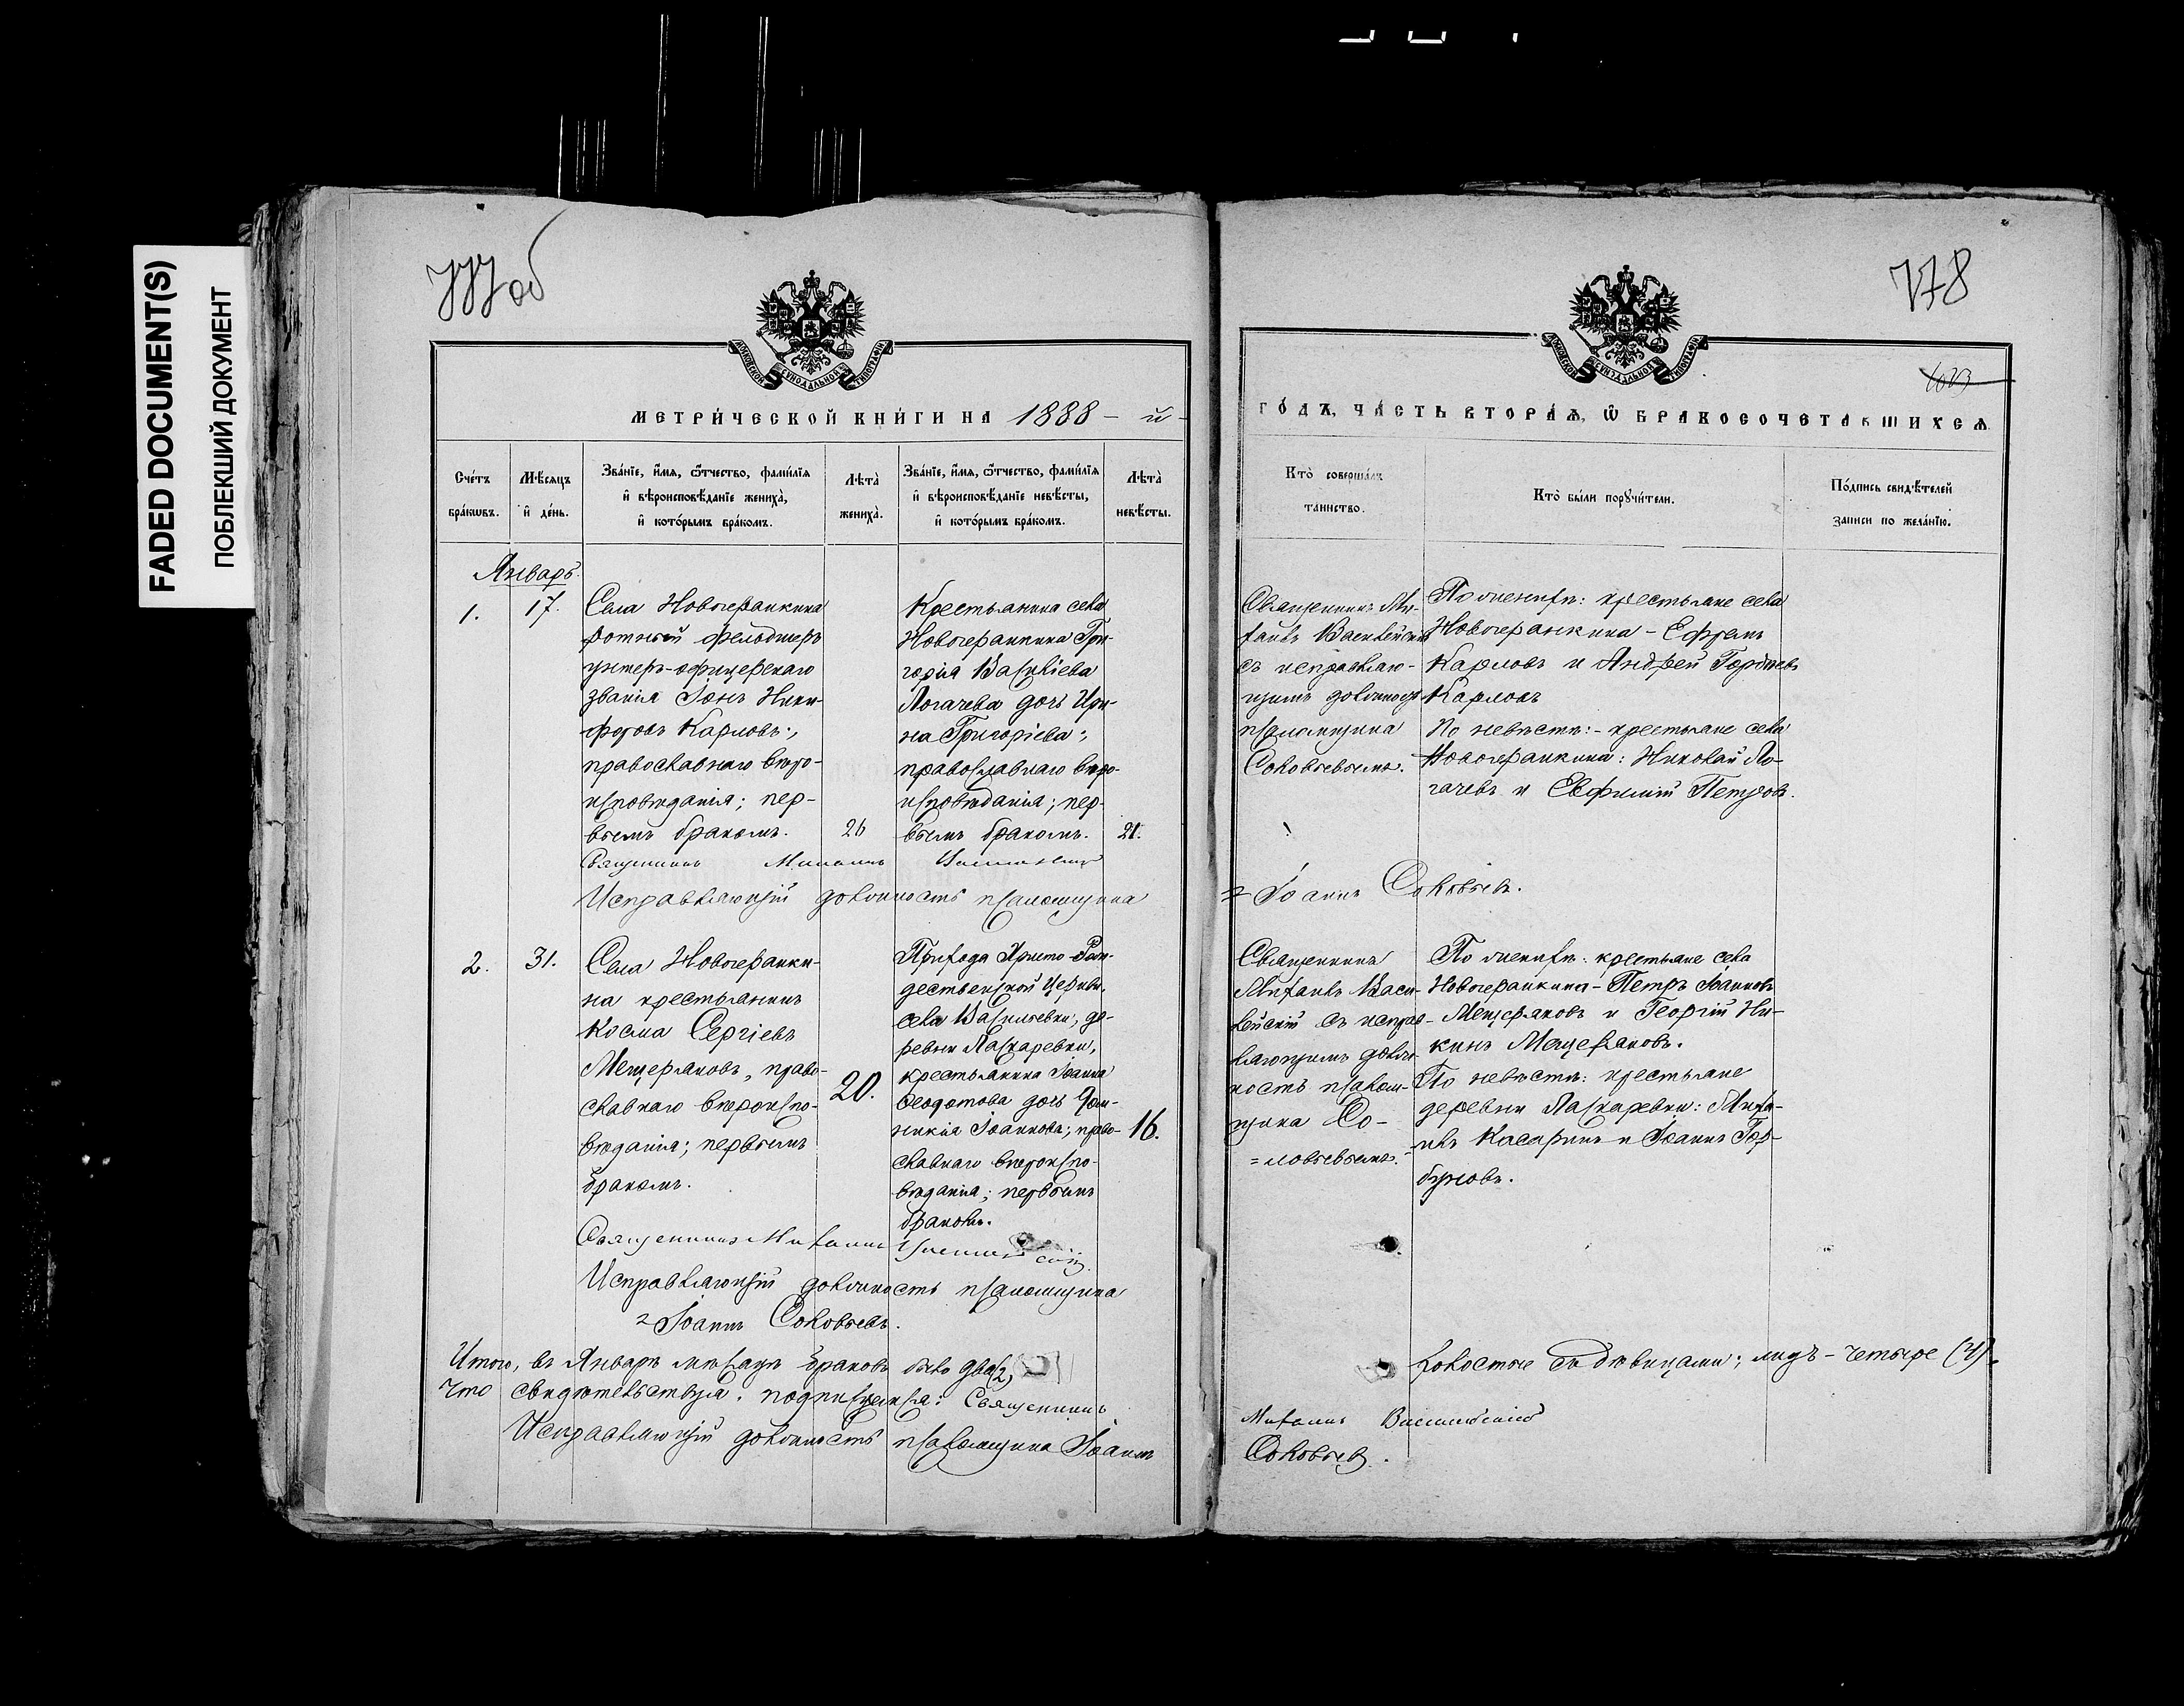 FADED DOCUMENT(S)
ПОБЛЕКШИЙ ДОКУМЕНТ
777 об
МЕТРИ́ЧЕСКОЙ КНИ́ГИ НА 1888 - й -
Сче́тъ бра́кѡвъ.
Мѣ́сяцъ и҆ де́нь.
Зва́нїе, и҆́мя, ѻ҆́тчество, фами́лїя
и҆ вѣроисповѣ́данїе жениха̀,
и҆ кото́рымъ бра́комъ.
Лѣта̀ жениха̀.
Зва́нїе, и҆́мя, ѻ҆́тчество, фами́лїя
и҆ вѣроисповѣ́данїе невѣ́сты,
и҆ кото́рымъ бра́комъ.
Лѣта̀ невѣ́сты.
Январь.
1.
17.
Села Новогеранкина
ротный фельдшеръ
унтеръ-офицерскаго
званія Іонъ Ники-
форовъ Карловъ;
православнаго вѣро-
исповѣданія; пер-
вымъ бракомъ.
26
Крестьянина села
Новогеранкина Гри-
горія Васильева
Логачева дочь Ири-
на Григоріева;
православнаго вѣро-
исповѣданія; пер-
вымъ бракомъ.
21.
Священникъ Михаилъ
Исправляющій должность псаломщика
2.
31.
Села Новогеранки-
на крестьянинъ
Косма Сергіевъ
Мещеряковъ, право-
славнаго вѣроиспо-
вѣданія; первымъ
бракомъ.
20.
Прихода Христо-Рож-
дественской церкви,
села Васильевки, де-
ревни Ласкаревки,
крестьянина Іоанна
Ѳеодотова дочь Дом-
никія Іоаннова; право-
славнаго вѣроиспо-
вѣданія; первымъ
бракомъ.
16.
Священникъ Михаилъ
Исправляющій должность псаломщика
Іоаннъ Соловьевъ.
Итого, въ Январѣ мѣсяцѣ браковъ было два (2)
Что свидѣтельствуя, подписуемся: Священникъ
Исправляющій должность псаломщика Іоаннъ
778
ГО́ДЪ, ЧА́СТЬ ВТОРА́Я, Ѡ҆ БРАКОСОЧЕТА́ВШИХСЯ.
Кто̀ соверша́лъ
та́инство.
Кто̀ бы́ли порꙋчи́тели.
По́дпись свидѣ́телей
за́писи по жела́нїю.
Священникъ Ми-
хаилъ Василейскій
съ исправляю-
щимъ должность
псаломщика
Соловьевымъ.
По женихѣ: крестьяне села
Новогеранкина - Ефремъ
Карловъ и Андрей Гордѣевъ
Карловъ
По невѣстѣ: - крестьяне села
Новогеранкина: Николай Ло-
гачевъ и Евфимій Петровъ.
Іоаннъ Соловьевъ.
Священникъ
Михаилъ Васи-
лейскій съ исправ-
ляющимъ долж-
ность псалом-
щика Со-
=ловьевымъ.
По женихѣ: крестьяне села
Новогеранкина - Петръ Іоанновъ
Мещеряковъ и Георгій Ни-
кинъ Мещеряковъ.
По невѣстѣ: крестьяне
деревни Ласкаревки: Миха-
илъ Касаринъ и Іоаннъ Гор-
буновъ.
холостые съ дѣвицами; лицъ - четыре (4).
Михаилъ Василейскій
Соловьевъ.